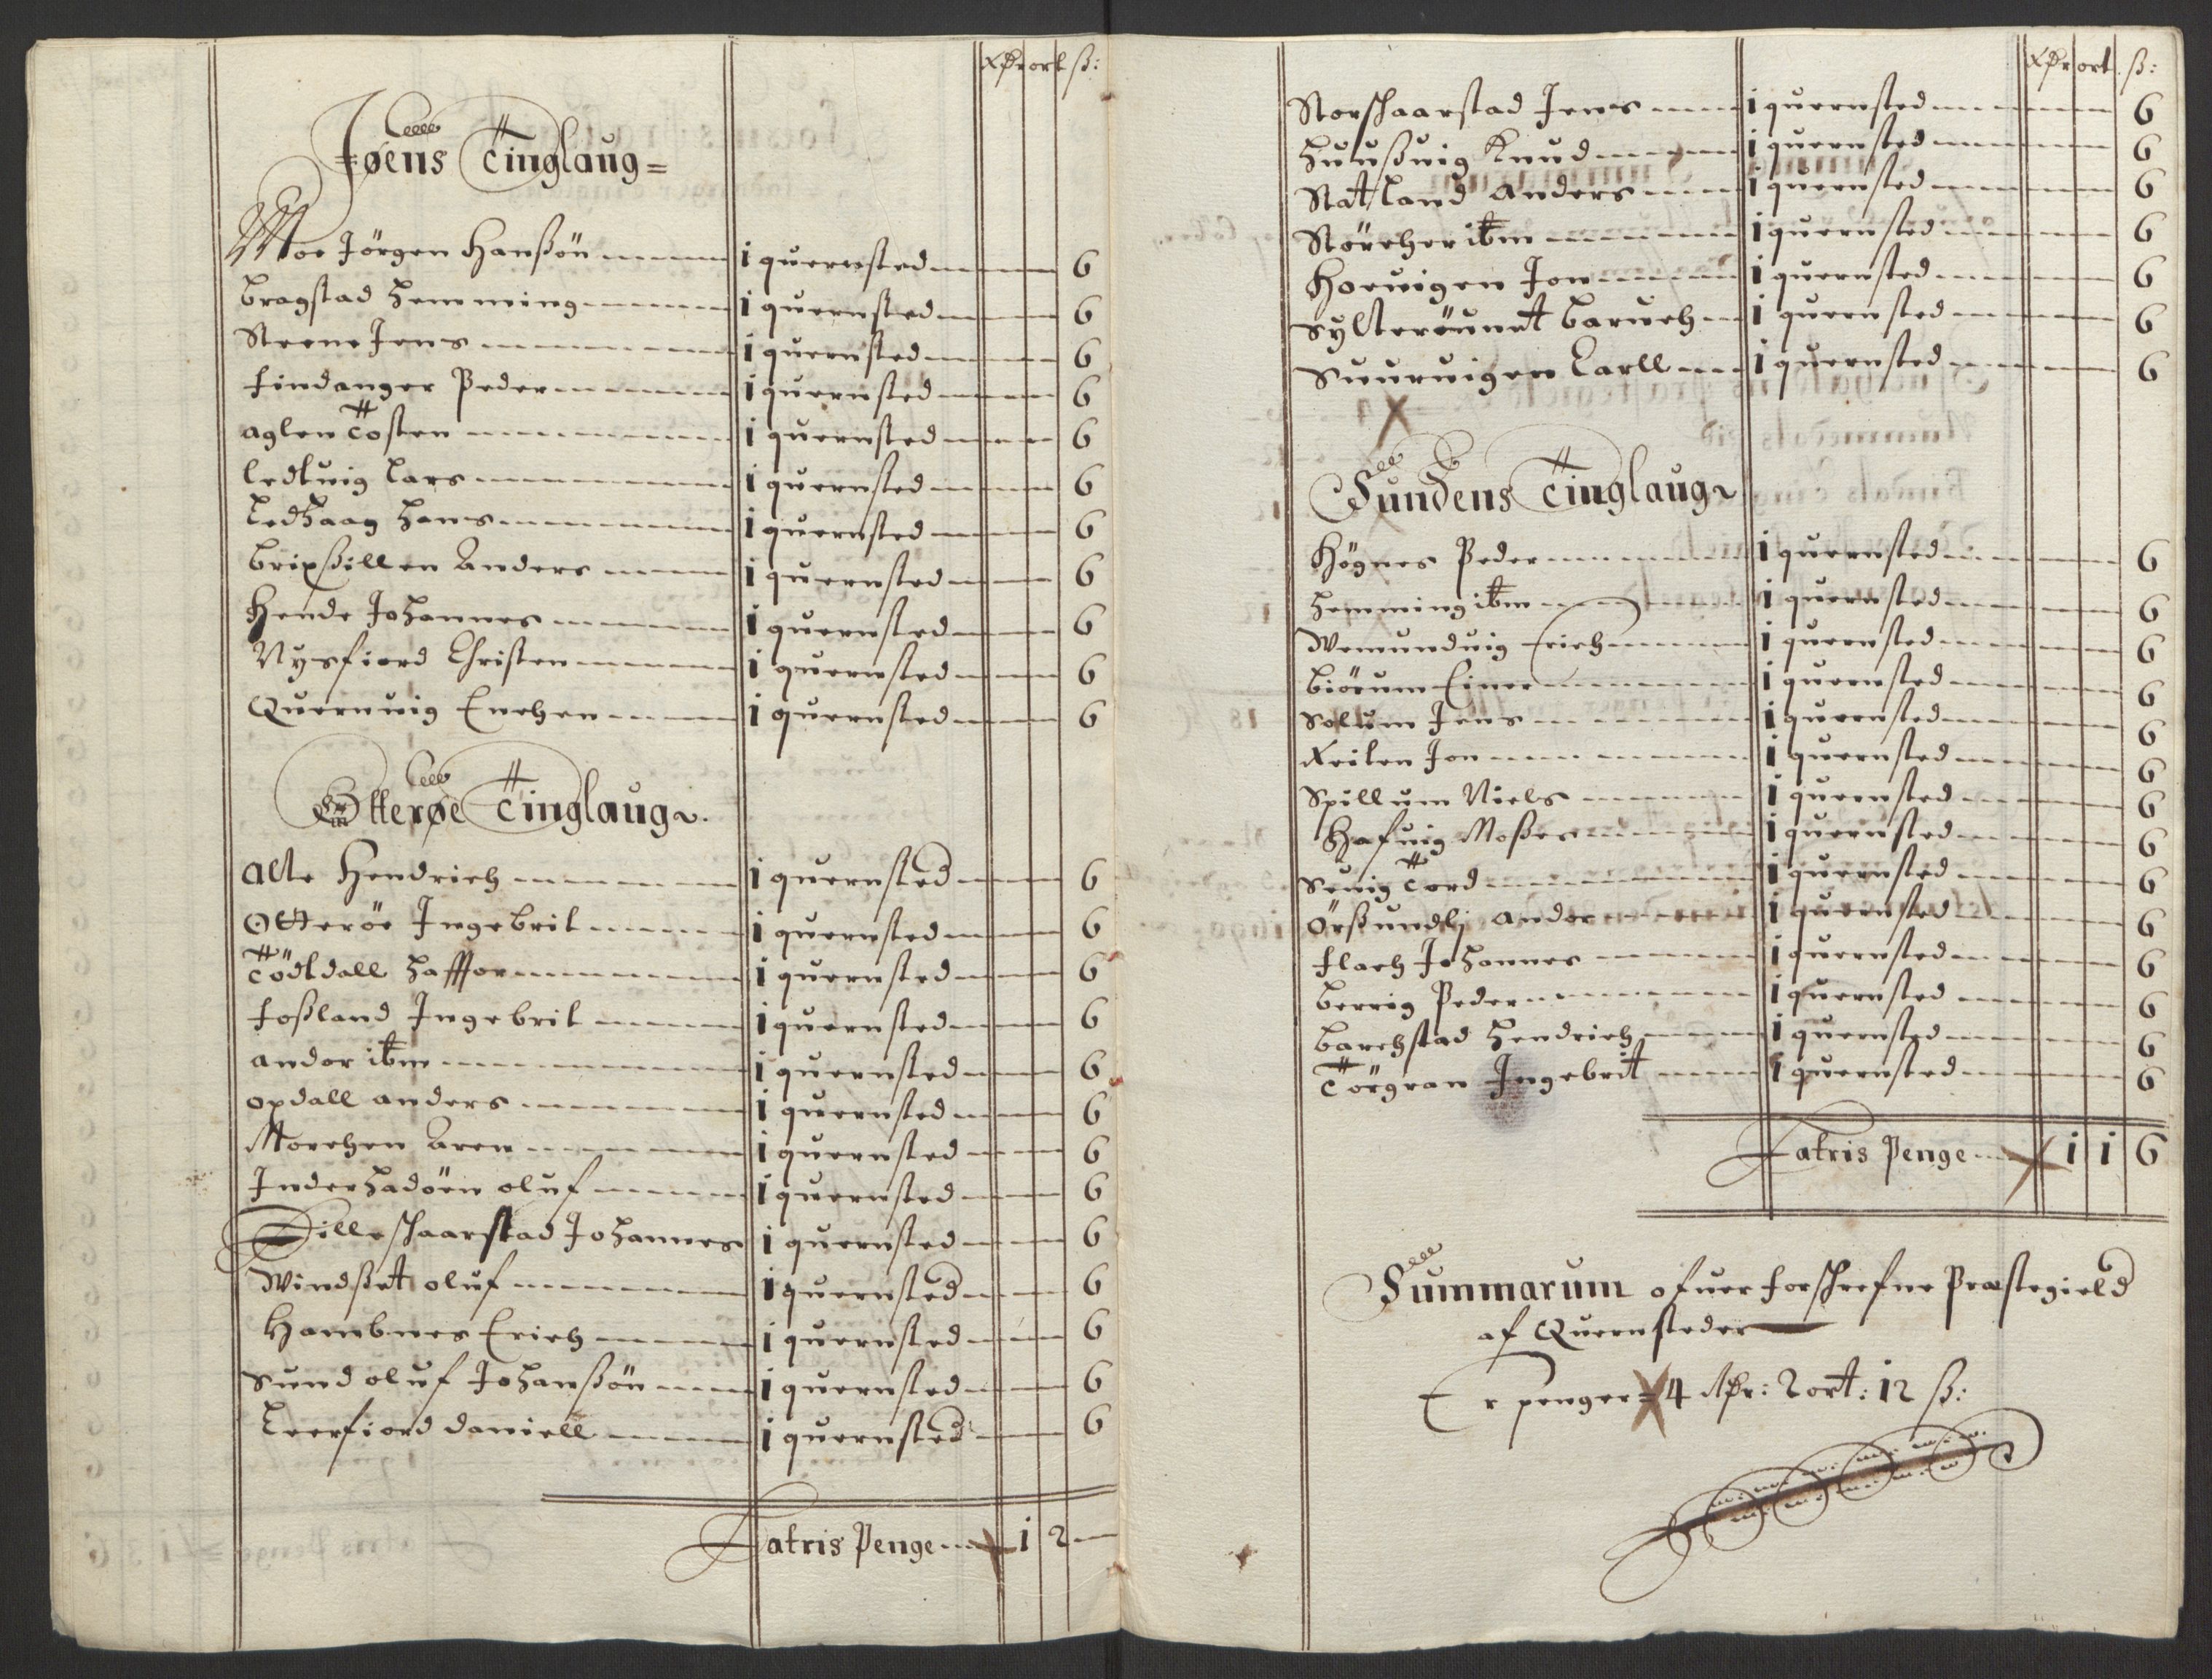 Rdr ort ß:
Føens Tinglaug =
Moe Jörgen Hanßön 1 quernsted 6
bragstad Hemming 1 quernsted 6
Steene Jens 1 quernsted 6
findanger Peder 1 quernsted 6
aglen Tosten 1 quernsted 6
ledtuig Lars 1 quernsted 6
Ledhaag Hans 1 quernsted 6
brixßillen Anders 1 quernsted 6
Hende Johannes 1 quernsted 6
Nysfiord Christen 1 quernsted 6
Quernuig Enchen 1 quernsted 6
Otterøe Tinglaug
Alte Hendrich 1 quernsted 6
Otteröe Ingebrit 1 quernsted 6
Tödtdall Haffor 1 quernsted 6
foßland Ingebrit 1 quernsted 6
andor ibm 1 quernsted 6
opdall anders 1 quernsted 6
Morchen Aren 1 quernsted 6
Inderhadöen oluf 1 quernsted 6
Lilleschaarstad Johannes 1 quernsted 6
Windßett oluf 1 quernsted 6
Hambnes Erich 1 quernsted 6
Sund oluf Johanßön 1 quernsted 6
Leerfiord daniell 1 quernsted 6
Latris Penge 1 2
Rdr ort ß:
Storschaarstad Jens 1 quernsted 6
Huußuig Knud 1 quernsted 6
Stattland Anders 1 quernsted 6
Störcher ibm 1 quernsted 6
Hoeuigen Jon 1 quernsted 6
Sylteröunet baruch 1 quernsted 6
Suuruigen Carll 1 quernsted 6
Sundens Tinglaug
Högnes Peder 1 quernsted 6
Hemming ibm 1 quernsted 6
Wemunduig Erich 1 quernsted 6
biörum Einer 1 quernsted 6
Solum Jens 1 quernsted 6
Reilen Jon 1 quernsted 6
Spillum Niels 1 quernsted 6
Hafuig Moßes 1 quernsted 6
Seuig Tord 1 quernsted 6
Örßundlj andor 1 quernsted 6
flach Johannes 1 quernsted 6
berrig Peder 1 quernsted 6
barchstad Hendrich 1 quernsted 6
Törgran Ingebrit 1 quernsted 6
Latris Penge 1 1 6
Summarum ofuer forschrefne Præstegield
af Quernsteder
Er penger = 4 Rdr: 2 ort: 12 ß: